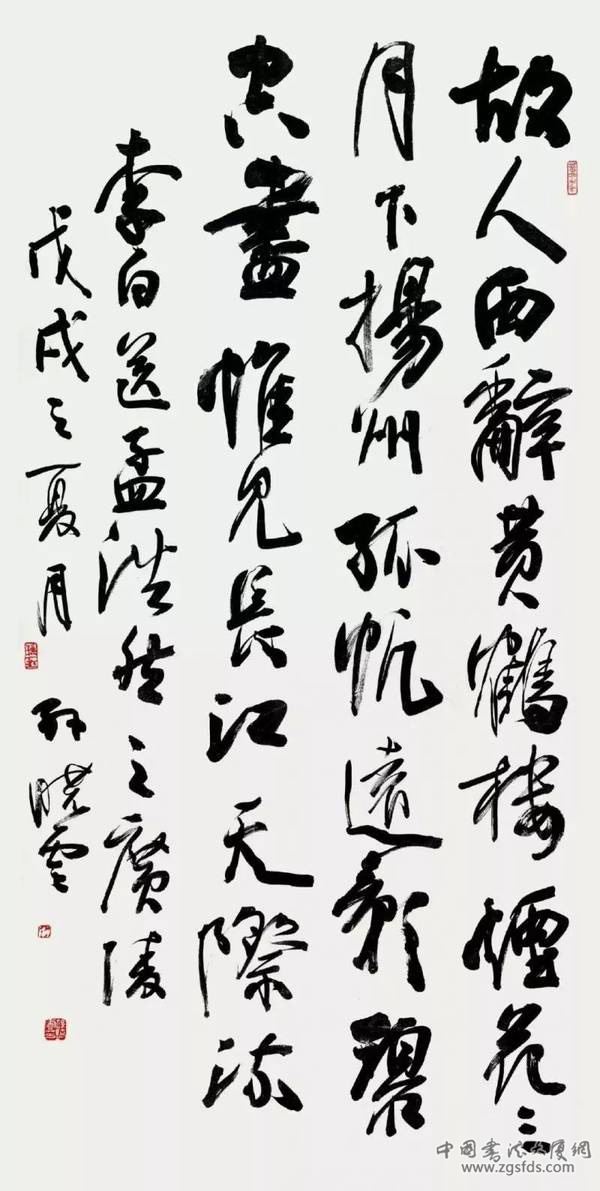 故人西辭黄鶴樓煙花三
月下揚州孤帆遠影碧
空盡惟見長江天際流
李白送孟浩然之廣陵
戊戌之夏月 孙晓雲
中國書法大厦網
www.zgsfds.com